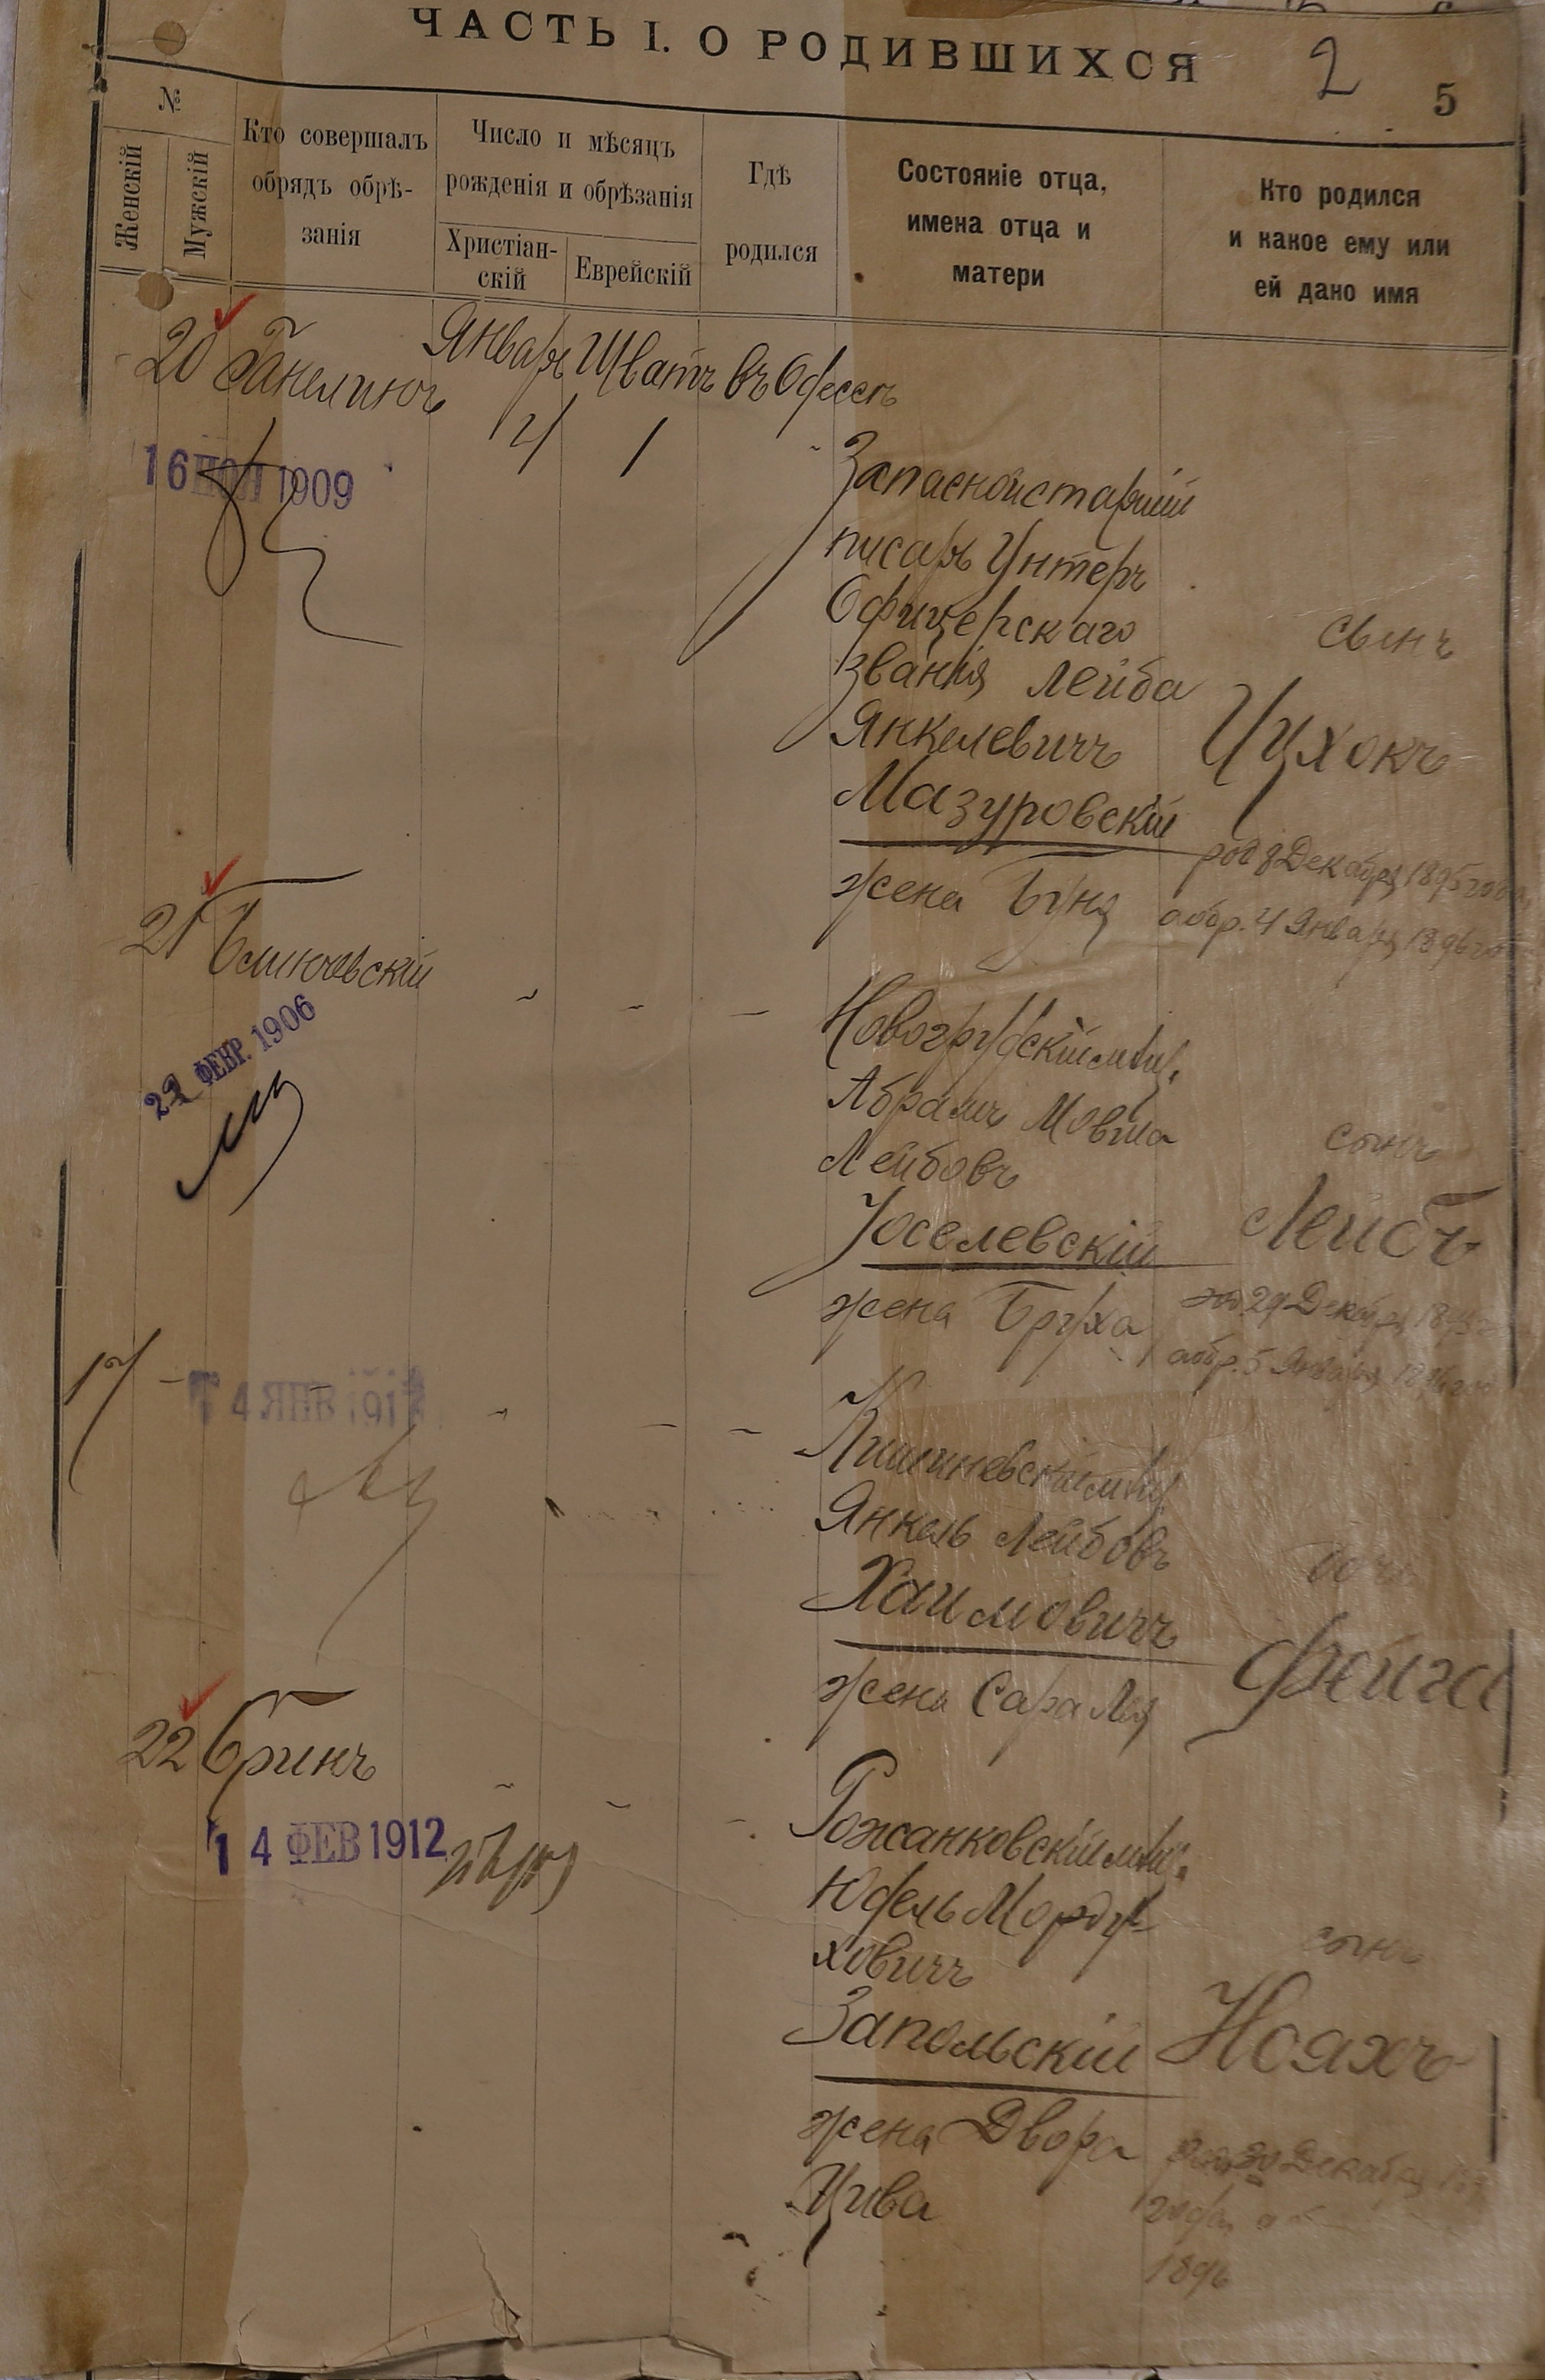 ЧАСТЬ I. О РОДИВШИХСЯ
2
5
№
Женскій
Мужскій
Кто совершалъ
обрядъ обрѣ-
занія
Число и мѣсяцъ
рожденія и обрѣзанія
Христіан-
скій
Еврейскій
Гдѣ
родился
Состояніе отца,
имена отца и
матери
Кто родился
и какое ему или
ей дано имя
20
Январь Шватъ въ Одессѣ
4 1
16 1909
Запасной старшій
писарь Унтеръ
Офицерскаго
званія Лейба
Янкелевичъ
Мазуровскій
жена Буня
сынъ
Ицхокъ
род 8 Декабря 1895 года
а обр. 4 Января 1896
21
22 ФЕВР. 1906
Новогрудскій мѣщ.
Абрамъ Мовша
Лейбовъ
Іоселевскій
жена Бруха
сынъ
Лейбъ
29 Декабря
а обр. 5 Января
17
4 ЯНВ 191
Кишиневскій мѣщ
Янкель Лейбовъ
Хаимовичъ
жена Сара Лея
дочь
Фейга
22 Гринъ
14 ФЕВ 1912
Рожанковскій мѣщ.
ЮдельМорду-
ховичъ
Запольскій
жена Двора
Цива
сынъ
Нояхъ
30 Декабря
года
1896